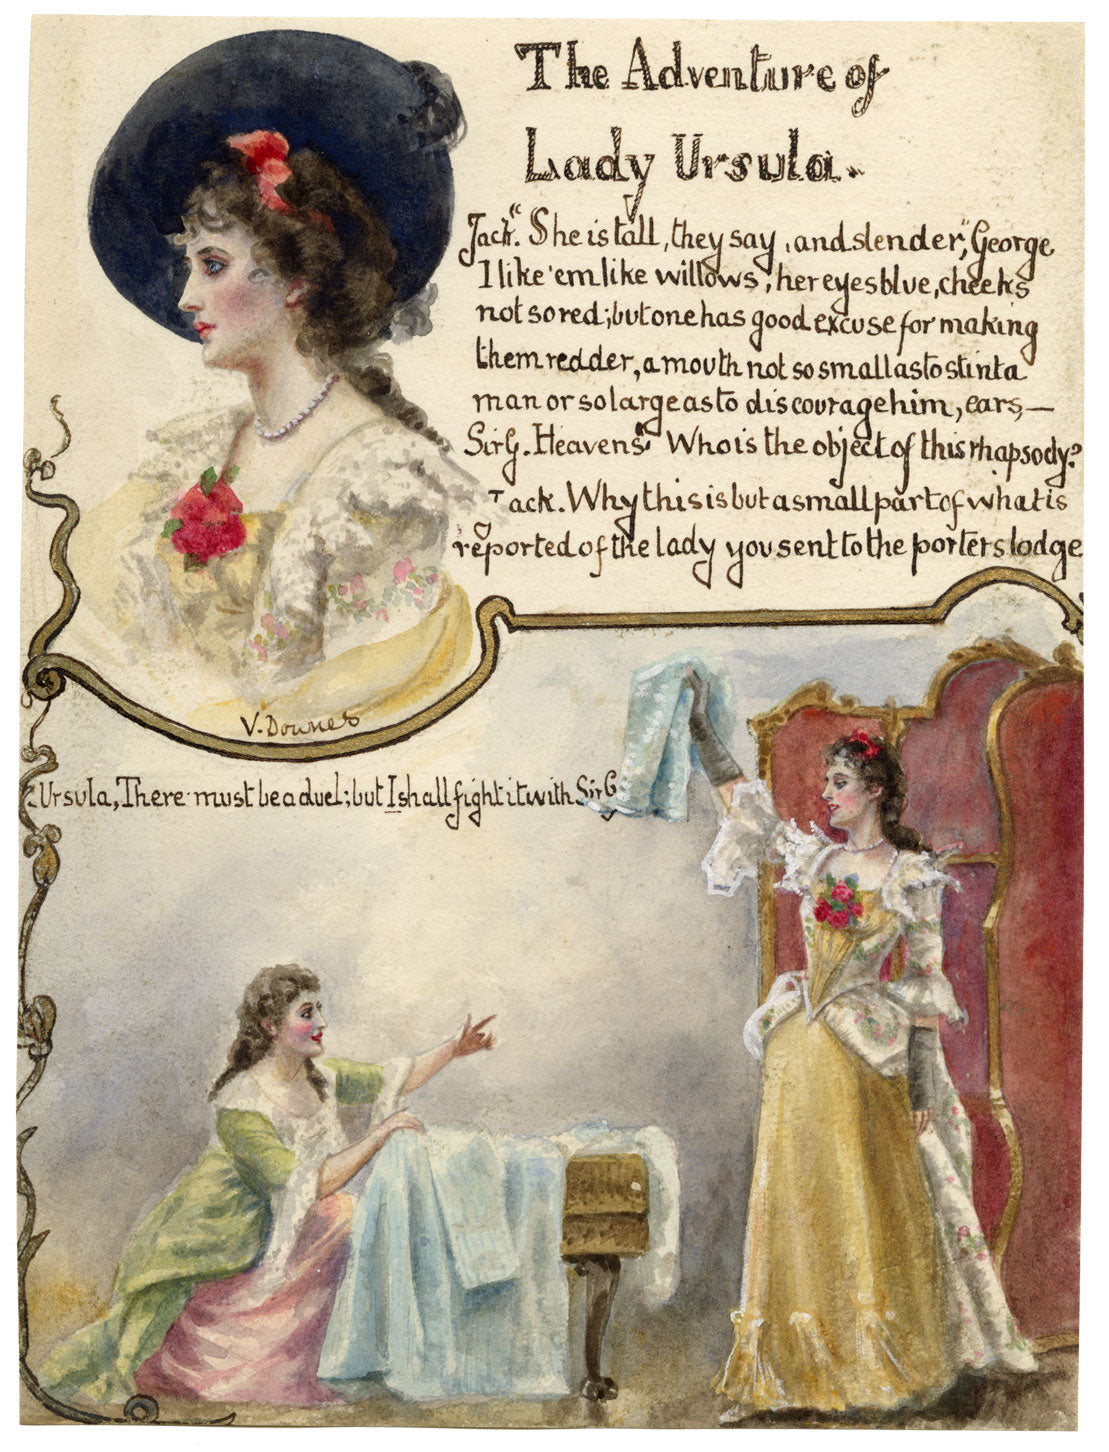 The Adventure of
Lady Ursula.
Jack. "She is tall, they say, and slender," George
I like 'em like willows; her eyes blue, cheeks
not so red; but one has good excuse for making
them redder, a mouth not so small as to stint a
man or so large as to discourage him, ears,—
Sir G. Heavens" Who is the object of this rhapsody?
Jack. Why this is but a small part of what is
reported of the lady you sent to the porters lodge
V. Downes
Ursula, There must be a duel; but I shall fight it with Sir G